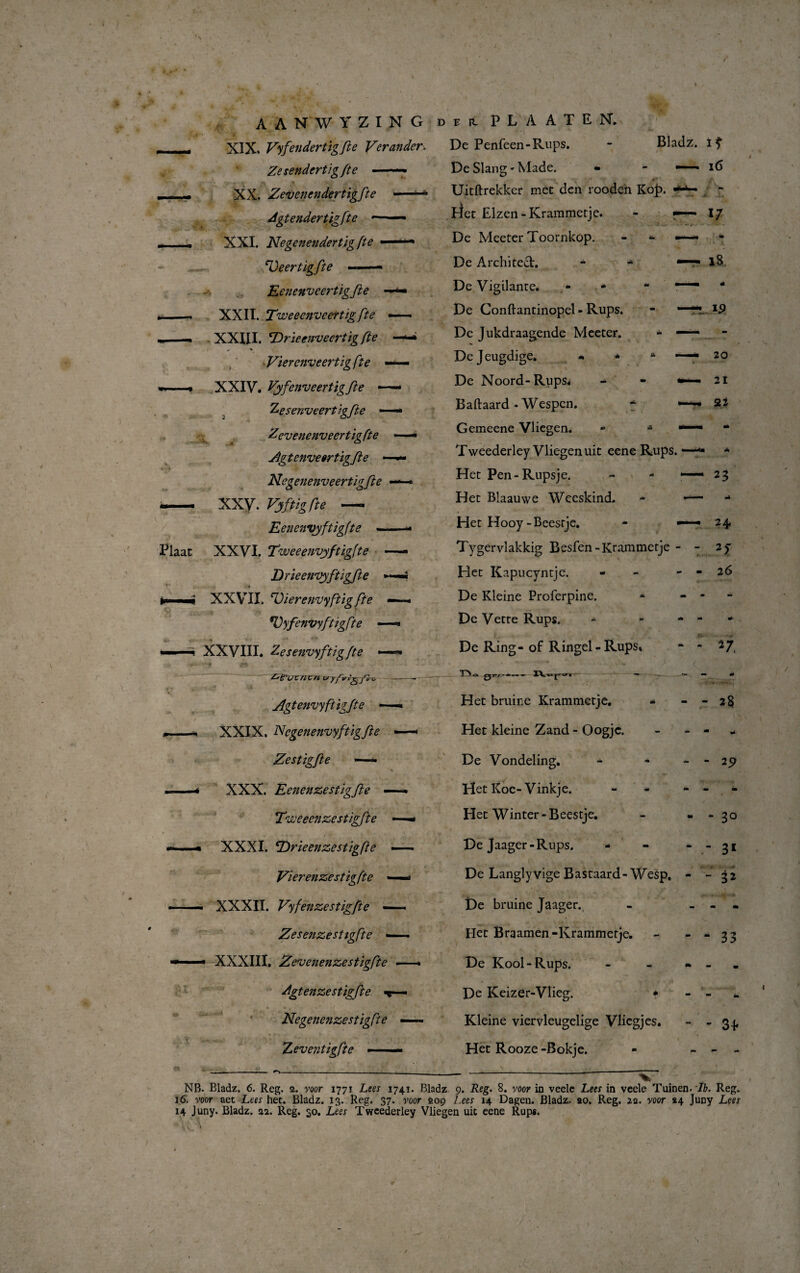 AANWYZING DER PLAATEN.
—— XIX. Vyfendertigſte Verander. De Penſeen-Rups. - Bladz. 15
Zesendertigſte —— De Slang-Made. - - —— 16
—— XX. Zevenendertigſte —— Uitſtrekker met den rooden Kop. —— -
Agtendertigſte —— Het Elzen-Krammetje. - —— 17
—— XXI. Negenendertigſte —— De Meeter Toornkop. - - —— -
Veertigſte —— De Architect. - - —— 18
Eenenveertigſte —— De Vigilante. - - - —— -
—— XXII. Tweeenveertigſte —— De Conſtantinopel-Rups. - —— 19
—— XXIII. Drieenveertigſte —— De Jukdraagende Meeter. - —— -
Vierenveertigſte —— De Jeugdige. - - - —— 20
—— XXIV. Vyfenveertigſte —— De Noord-Rups. - - —— 21
Zesenveertigſte —— Baſtaard-Wespen. - —— 22
Zevenenveertigſte —— Gemeene Vliegen. - - —— -
Agtenveertigſte —— Tweederley Vliegen uit eene Rups. —— -
Negenenveertigſte —— Het Pen-Rupsje. - - —— 23
—— XXV. Vyftigſte —— Het Blaauwe Weeskind. - —— -
Eenenvyftigſte —— Het Hooy-Beestje. - —— 24
Plaat XXVI. Tweeenvyftigſte —— Tygervlakkig Besſen-Krammetje - - 25
Drieenvyftigſte —— Het Kapucyntje. - - - - 26
—— XXVII. Vierenvyftigſte —— De Kleine Proſerpine. - - - -
Vyfenvyftigſte —— De Vetre Rups. - - - - -
—— XXVIII. Zesenvyftigſte —— De Ring- of Ringel-Rups. - - 27.
Zevenenvyftigſte —— De - - -
Agtenvyftigſte —— Het bruine Krammetje. - - - 28
—— XXIX. Negenenvyftigſte —— Het kleine Zand-Oogje. - - - -
Zestigſte —— De Vondeling. - - - - 29
—— XXX. Eenenzestigſte —— Het Koe-Vinkje. - - - - -
Tweeenzestigſte —— Het Winter-Beestje. - - - 30
—— XXXI. Drieenzestigſte —— De Jaager-Rups. - - - - 31
Vierenzestigſte —— De Langlyvige Bastaard-Wesp. - - 32
—— XXXII. Vyfenzestigſte —— De bruine Jaager. - - - -
Zesenzestigſte —— Het Braamen-Krammetje. - - - 33
—— XXXIII. Zevenenzestigſte —— De Kool-Rups. - - - - -
Agtenzestigſte —— De Keizer-Vlieg. - - - -
Negenenzestigſte —— Kleine viervleugelige Vliegjes. - - 34
Zeventigſte —— Het Rooze-Bokje. - - - -
NB. Bladz. 6. Reg. 2. voor 1771 Lees 1741. Bladz. 9. Reg. 8. voor in veele Lees in veele Tuinen. Ib. Reg.
16. voor aet Lees het. Bladz. 13. Reg. 37. voor 209 Lees 14 Dagen. Bladz. 20. Reg. 22. voor 24 Juny Lees
14 Juny. Bladz. 22. Reg. 30. Lees Tweederley Vliegen uit eene Rups.